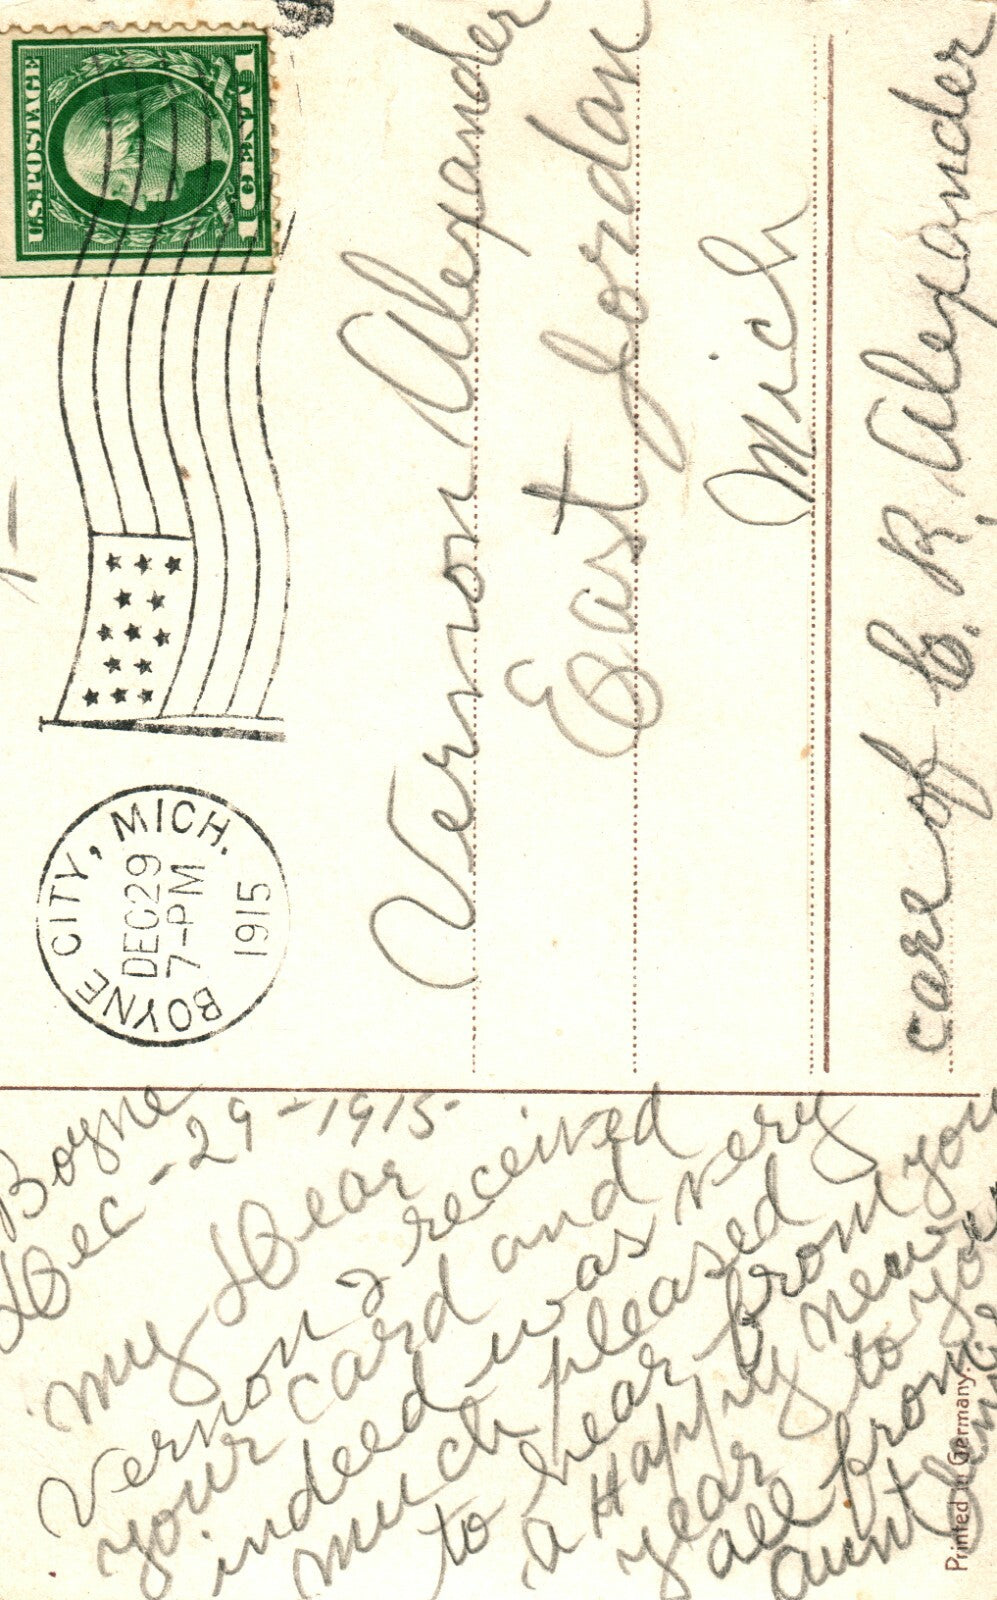 U.S. POSTAGE
1 CENT 1
BOYNE CITY, MICH.
DEC 29
7-PM
1915
Vernon Alexander
East Jordan
Mich
care of C. R. Alexander
Boyne
Dec-29-1915-
My Dear
Vernon I received
your card and
indeed was very
much pleased
to hear from you
a Happy New
year to you
all from
aunt
Printed in Germany.